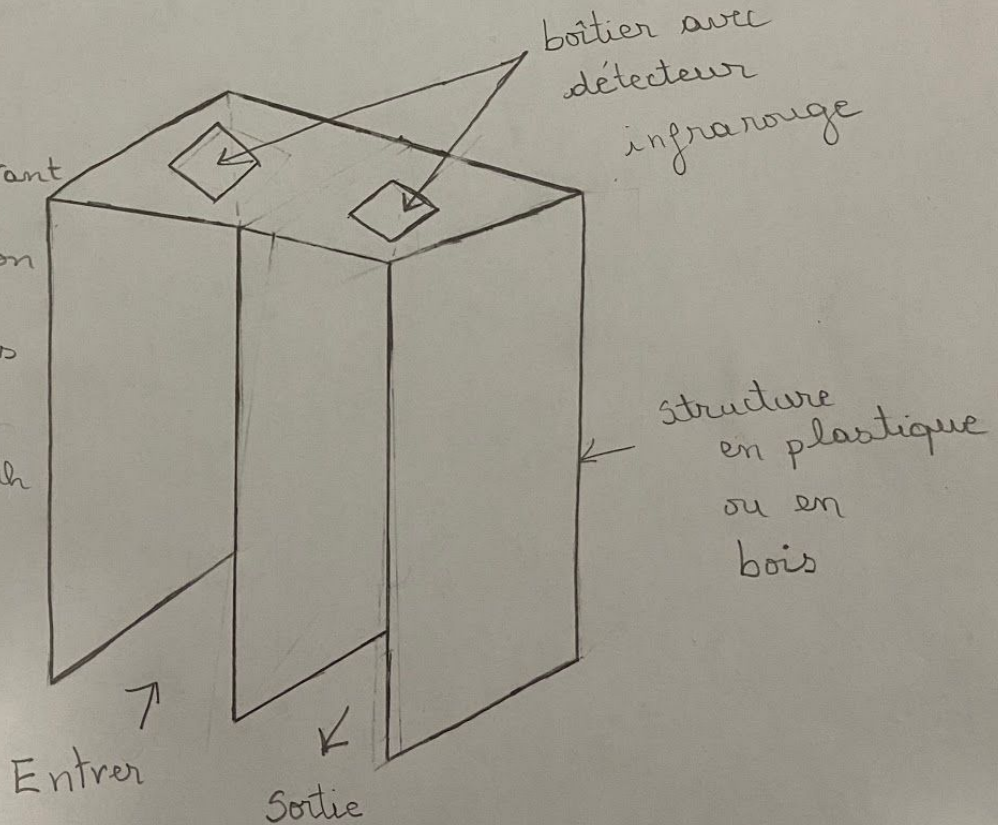 boîtier avec
détecteur
infrarouge
on
structure
en plastique
ou en
bois
Entrer
Sortie